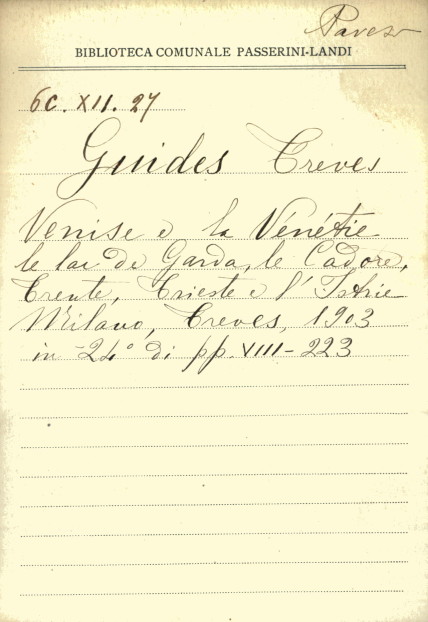 Pavesi
BIBLIOTECA COMUNALE PASSERINI-LANDI
6C. XII. 27
Guides Treves
Venise e la Vénétie
le lac de Garda, le Cadore,
Trente, Trieste e l'Istrie
Milano, Treves, 1903
in -24° di pp. VIII - 223